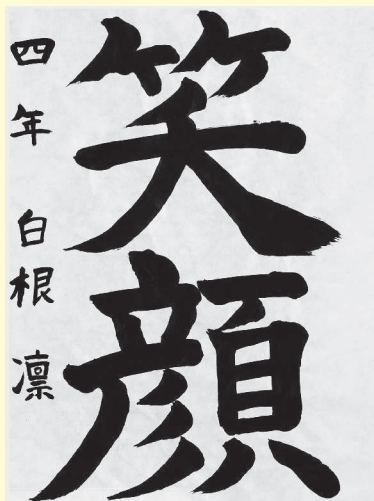 笑顔
四年 白根 凛